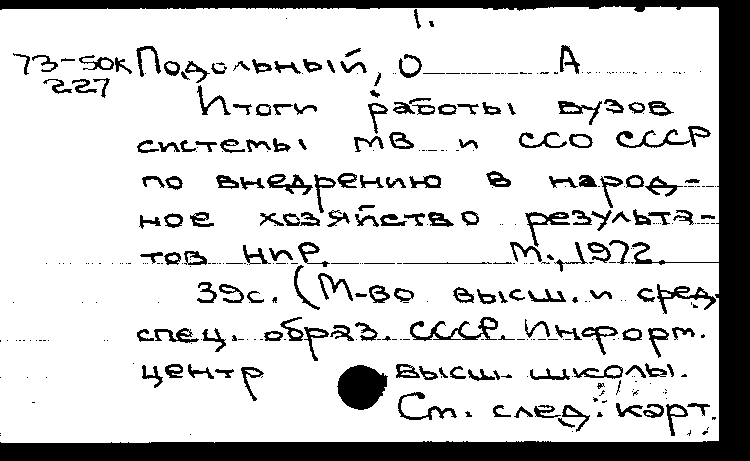 1.
73-50К Подольный, О А
227
Итоги работы вузов
системы МВ и ССО СССР
по внедрению в народ-
ное хозяйство результа-
тов НИР. М., 1972.
39с. (М-во высш. и сред.
спец. образ. СССР. Информ.
центр высш. школы.
См. след. карт.